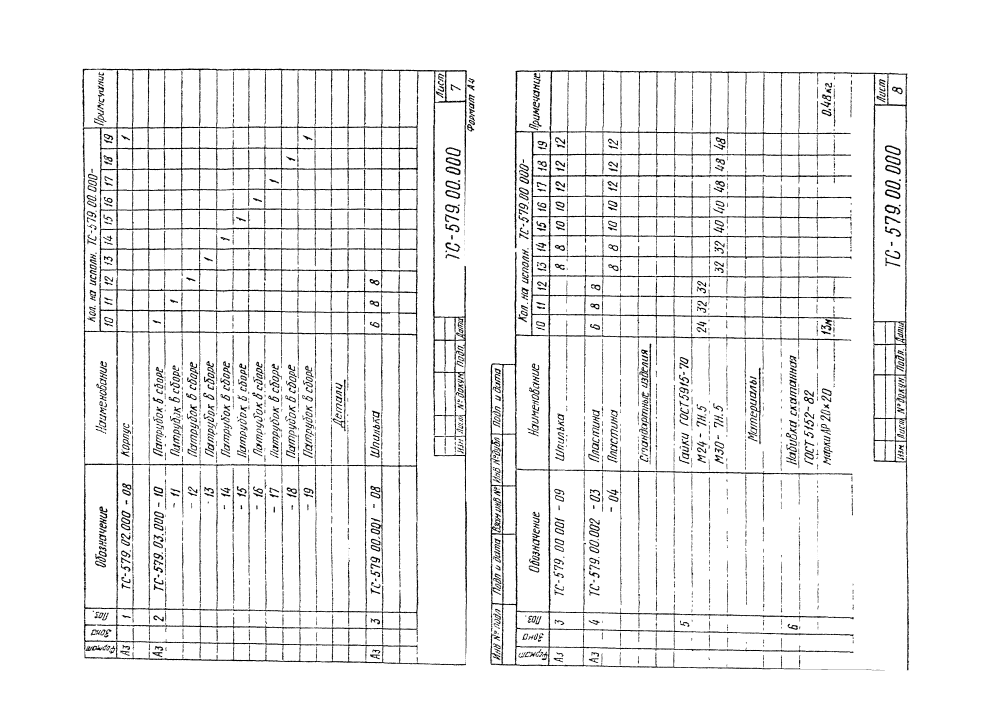 Формат Зона Поз. Обозначение Наименование Кол. на исполн. ТС-579.00.000- Примечание
10 11 12 13 14 15 16 17 18 19
А3 1 ТС-579.02.000 - 08 Корпус 1
А3 2 ТС-579.03.000 - 10 Патрубок в сборе 1
- 11 Патрубок в сборе 1
- 12 Патрубок в сборе 1
- 13 Патрубок в сборе 1
- 14 Патрубок в сборе 1
- 15 Патрубок в сборе 1
- 16 Патрубок в сборе 1
- 17 Патрубок в сборе 1
- 18 Патрубок в сборе 1
- 19 Патрубок в сборе 1
Детали
А3 3 ТС-579 00.001 - 08 Шпилька 6 8 8
Изм Лист № докум. Подп. Дата
ТС-579.00.000
Лист
7
Формат А4
Инв № подл Подп и дата Взам инв № Инв № дубл Подп и дата
Формат Зона Поз. Обозначение Наименование Кол. на исполн. ТС-579.00 000- Примечание
10 11 12 13 14 15 16 17 18 19
А3 3 ТС-579. 00 001 - 09 Шпилька 8 8 10 10 12 12 12
А3 4 ТС-579.00.002 - 03 Пластина 6 8 8
- 04 Пластина 8 8 10 10 12 12 12
Стандартные изделия
5 Гайки ГОСТ 5915-70
М24 - 7Н.5 24 32 32
М30 - 7Н.5 32 32 40 40 48 48 48
Материалы
6 Набивка скатанная
ГОСТ 5152-82
марки АР 20×20 13м 0.48кг
Изм Лист № докум. Подп. Дата
ТС-579.00.000
Лист
8